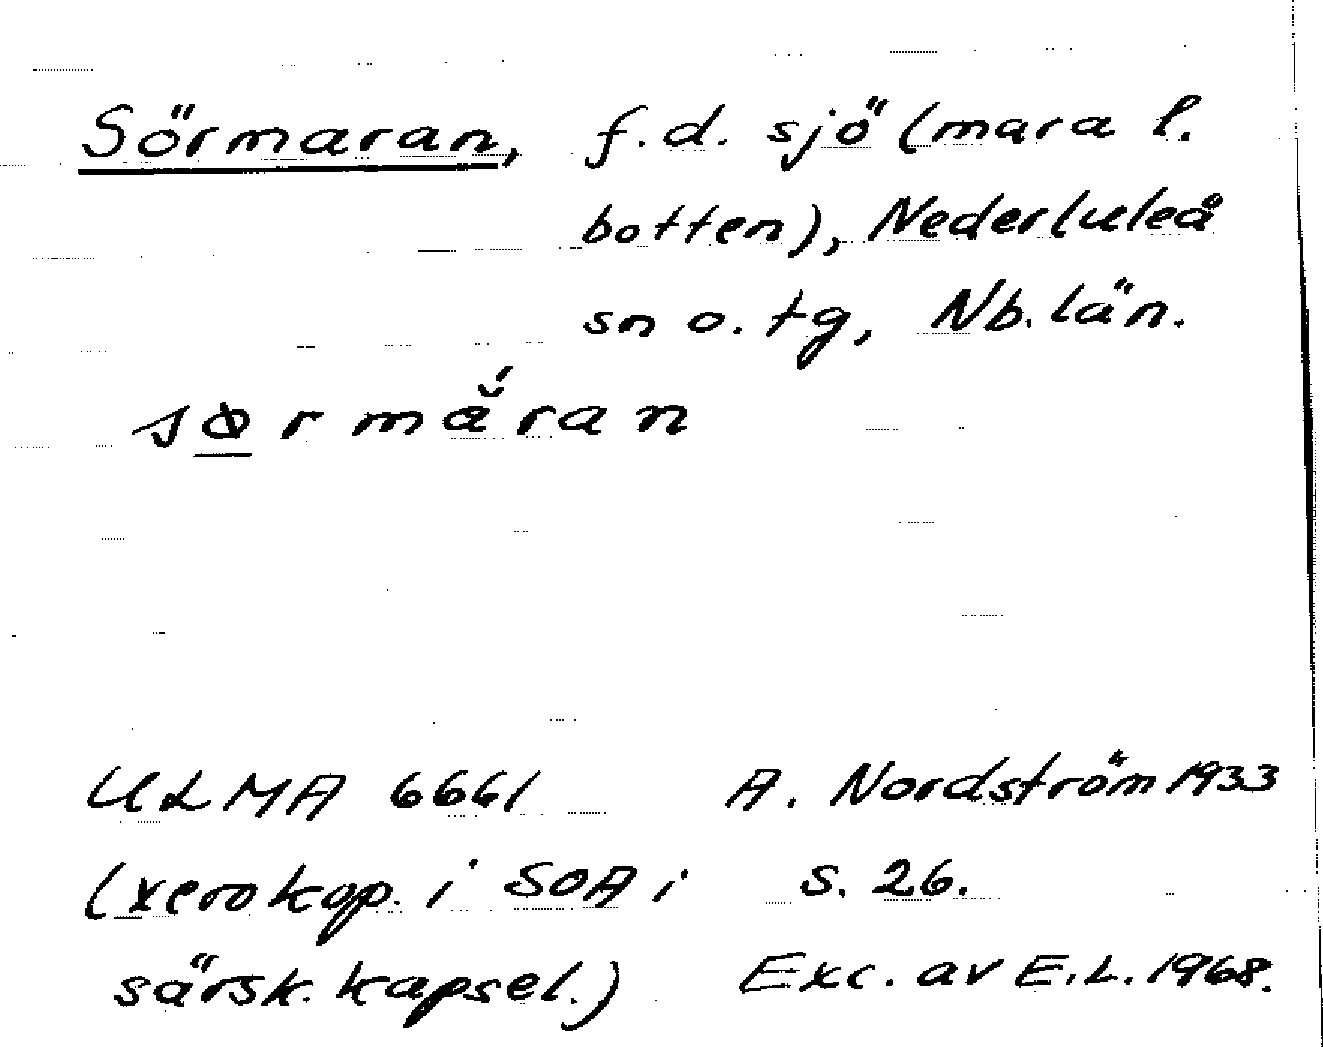 Sörmaran, f.d. sjö (mara l.
botten), Nederluleå
sn o. tg, Nb. län.
sørmä̆́ran
ULMA 6661 A. Nordström 1933
(xerokop. i SOA i s. 26.
särsk. kapsel.) Exc. av E.L. 1968.